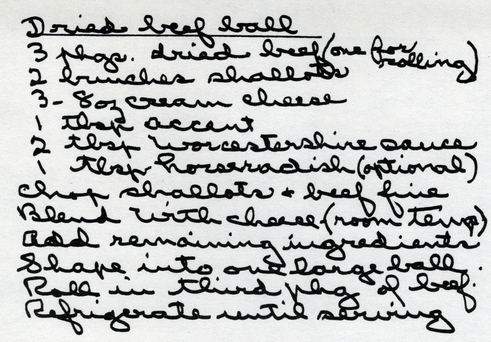 Dried beef ball
3 pkgs. dried beef (one for rolling)
2 bunches shallots
3 - 8oz cream cheese
1 tbsp accent
2 tbsp worcestershire sauce
1 tbsp horseradish (optional)
Chop shallots + beef fine
Blend with cheese (room temp)
Add remaining ingredients
Shape into one large ball.
Roll in third pkg of beef.
Refrigerate until serving